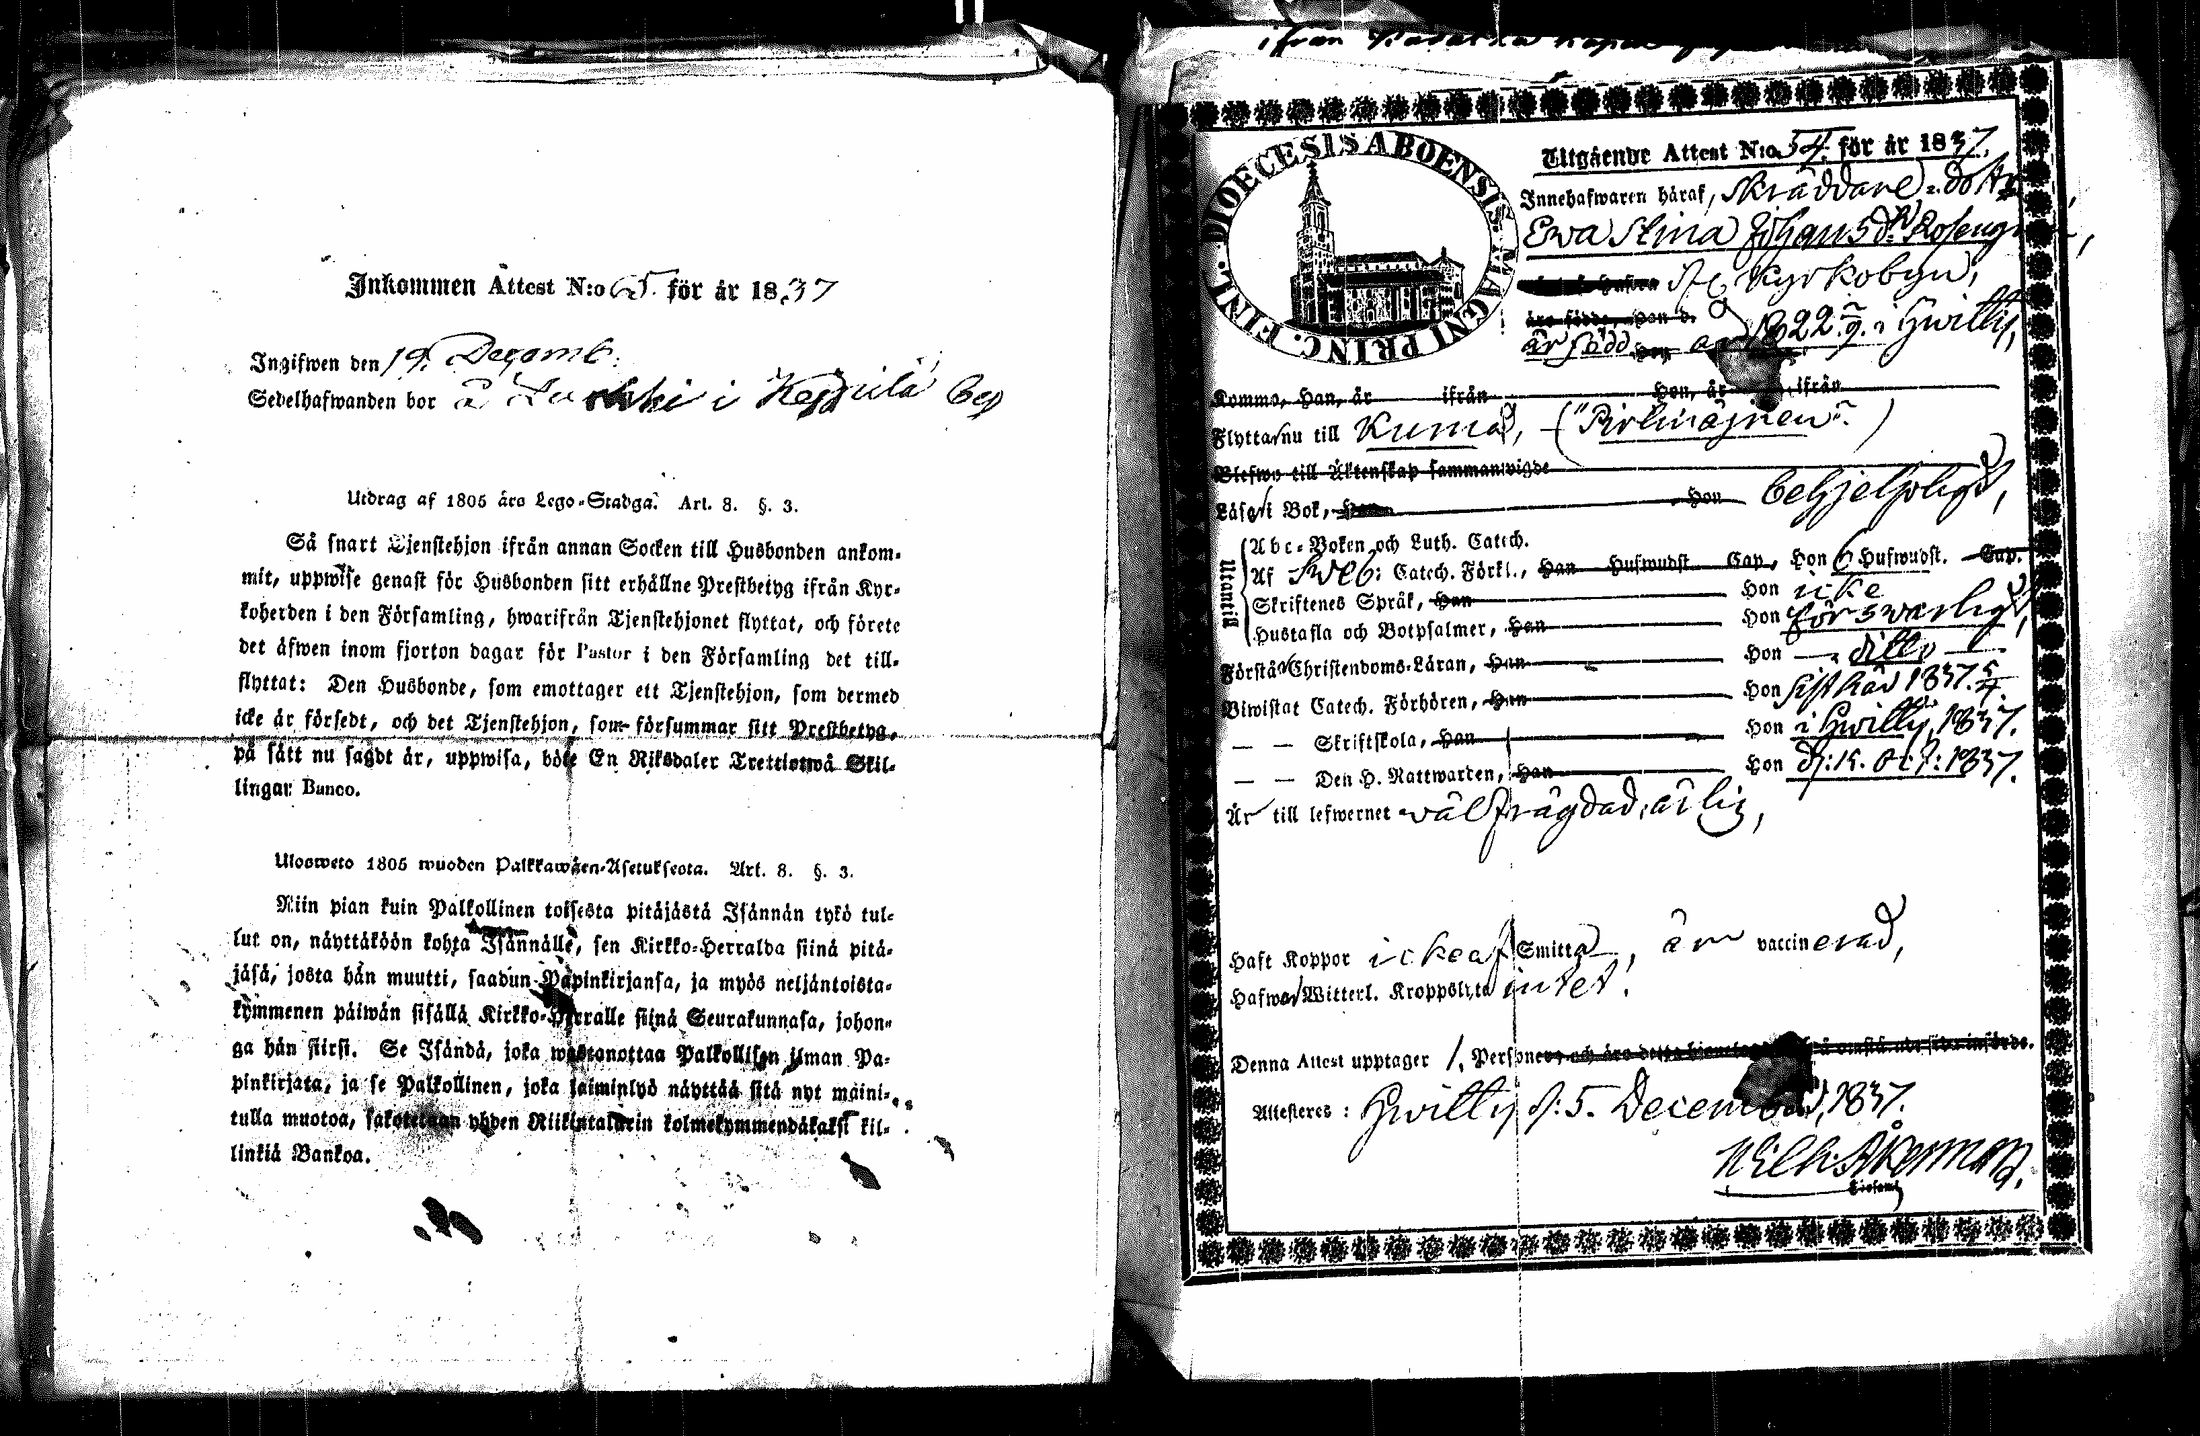 Inkommen Attest N:o 65. för år 1837
Ingifwen den 19. Decemb:
Sedelhafwanden bor å i Keppilä by
Utdrag af 1805 års Lego-Stadga. Art. 8. §. 3.
Så snart Tjenstehjon ifrån annan Socken till Husbonden ankom-
mit, uppwise genast för Husbonden sitt erhållne Prestbetyg ifrån Kyr-
koherden i den Församling, hwarifrån Tjenstehjonet flyttat, och förete
det äfwen inom fjorton dagar för Pastor i den Församling det till-
flyttat: Den Husbonde, som emottager ett Tjenstehjon, som dermed
icke är försedt, och det Tjenstehjon, som försummar sitt Prestbetyg,
på sätt nu sagdt är, uppwisa, böte En Riksdaler Trettiotwå Skil-
lingar Banco.
Ulosweto 1805 wuoden Palkkawäen-Asetuksesta. Art. 8. §. 3.
Niin pian kuin Palkollinen toisesta pitäjästä Isännän tykö tul-
lut on, näyttäköön kohta Isännälle, sen Kirkko-Herralda siinä pitä-
jäsä, josta hän muutti, saadun Papinkirjansa, ja myös neljäntoista-
kymmenen päiwän sisällä Kirkko-Herralle siinä Seurakunnasa, johon-
ga hän siirsi. Se Isändä, joka wastanottaa Palkollisen ilman Pa-
pinkirjata, ja se Palkollinen, joka laiminlyö näyttää sitä nyt maini-
tulla muotoa, sakotetaan yhden Riikintalarin kolmekymmendäkaksi kil-
linkiä Bankoa.
ifrån
DIOECESIS ABOENSIS MAGNI PRINC. FINL.
Utgående Attest N:o 54. för år 1837.
Innehafwaren häraf, Skräddare-dottr
Ewa Stina Johansdr Roseng
Kyrkobyn,
äro födde, Han d.
är född 1822 i Hwittis,
Komma, Han, år ifrån Hon, år ifrån
Flytta nu till Kumo, ("Pirlmäjnen")
Blefwo till Äktenskap sammanwigde
Läser i Bok, Han Hon behjelpligt,
Utantill
Abc-Boken och Luth. Catech.
Af Sweb: Catech. Förkl., Han Hufwudst. Cap., Hon 6 Hufwudst. Cap.
Skriftenes Språk, Han Hon icke
Hustafla och Botpsalmer, Han Hon förswarligt,
Förstår Christendoms-Läran, Han Hon ditto
Biwistat Catech. Förhören, Han Hon sistl. år 1837.
— — Skriftskola, Han Hon i Hwittis, 1837.
— — Den H. Nattwarden, Han Hon d: 15. Oct: 1837.
Är till lefwernet wälfrägdad, ärlig,
Haft Koppor icke af Smitta, är vaccinerad,
Hafwer Witterl. Kroppslyte intet.
Denna Attest upptager 1. Personer, och äro
Attesteres: Hwittis d: 5. December, 1837.
Wilh: Åkerman,